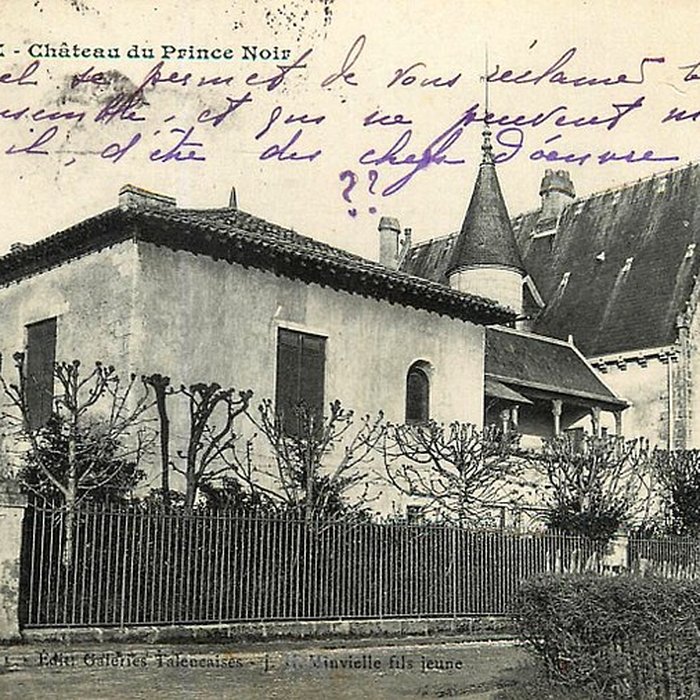 - Château du Prince Noir
se permet de vous réclamer
et qui ne peuvent
il, d'être des chefs d'œuvre
??
Edit. Galeries Talençaises - J. H. Minvielle fils jeune